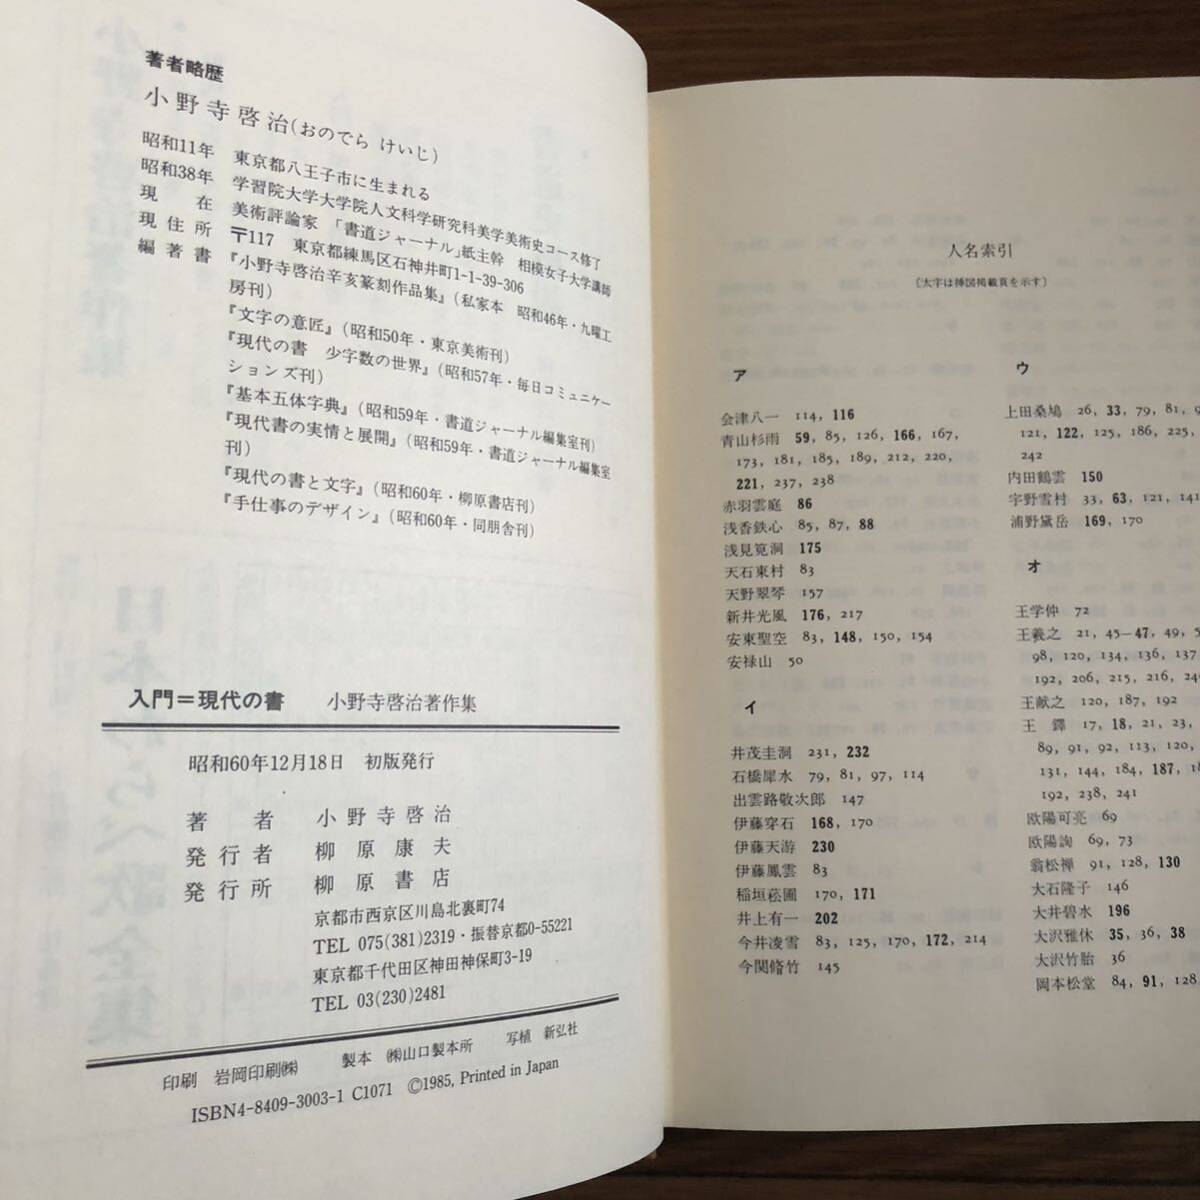 著者略歴
小野寺啓治(おのでら けいじ)
昭和11年 東京都八王子市に生まれる
昭和38年 学習院大学大学院人文科学研究科美学美術史コース修了
現在 美術評論家 「書道ジャーナル」紙主幹 相模女子大学講師
現住所 〒117 東京都練馬区石神井町1-1-39-306
編著書 『小野寺啓治辛亥篆刻作品集』(私家本 昭和46年・九曜工
房刊)
『文字の意匠』(昭和50年・東京美術刊)
『現代の書 少字数の世界』(昭和57年・毎日コミュニケー
ションズ刊)
『基本五体字典』(昭和59年・書道ジャーナル編集室刊)
『現代書の実情と展開』(昭和59年・書道ジャーナル編集室
刊)
『現代の書と文字』(昭和60年・柳原書店刊)
『手仕事のデザイン』(昭和60年・同朋舎刊)
入門=現代の書 小野寺啓治著作集
昭和60年12月18日 初版発行
著者 小野寺啓治
発行者 柳原康夫
発行所 柳原書店
京都市西京区川島北裏町74
TEL 075(381)2319・振替京都0-55221
東京都千代田区神田神保町3-19
TEL 03(230)2481
印刷 岩岡印刷㈱ 製本 ㈱山口製本所 写植 新弘社
ISBN4-8409-3003-1 C1071 ©1985, Printed in Japan
人名索引
(太字は挿図掲載頁を示す)
ア
会津八一 114, 116
青山杉雨 59, 85, 126, 166, 167,
173, 181, 185, 189, 212, 220,
221, 237, 238
赤羽雲庭 86
浅香鉄心 85, 87, 88
浅見筧洞 175
天石東村 83
天野翠琴 157
新井光風 176, 217
安東聖空 83, 148, 150, 154
安禄山 50
イ
井茂圭洞 231, 232
石橋犀水 79, 81, 97, 114
出雲路敬次郎 147
伊藤穿石 168, 170
伊藤天游 230
伊藤鳳雲 83
稲垣菘圃 170, 171
井上有一 202
今井凌雪 83, 125, 170, 172, 214
今関脩竹 145
ウ
上田桑鳩 26, 33, 79, 81,
121, 122, 125, 186, 225,
242
内田鶴雲 150
宇野雪村 33, 63, 121, 141
浦野黛岳 169, 170
オ
王学仲 72
王羲之 21, 45—47, 49,
98, 120, 134, 136, 137
192, 206, 215, 216,
王献之 120, 187, 192
王鐸 17, 18, 21, 23,
89, 91, 92, 113, 120,
131, 144, 184, 187,
192, 238, 241
欧陽可亮 69
欧陽詢 69, 73
翁松禅 91, 128, 130
大石隆子 146
大井碧水 196
大沢雅休 35, 36, 38
大沢竹胎 36
岡本松堂 84, 91, 128